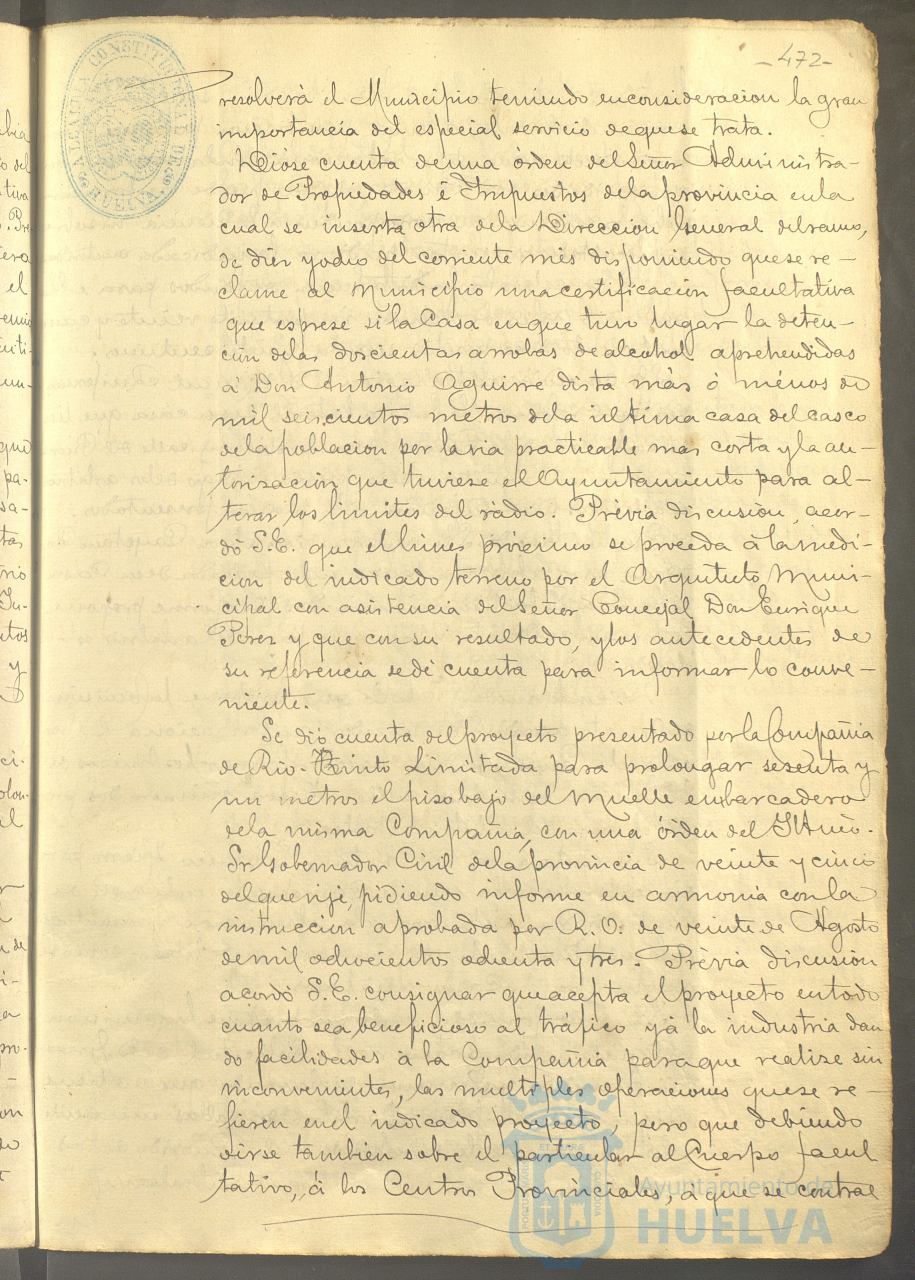 -472-
ALCALDIA CONSTITUCIONAL DE HUELVA
resolverá el Municipio teniendo en consideracion la gran
importancia del especial servicio de que se trata.
Dióse cuenta de una órden del Señor Administra-
dor de Propiedades é Impuestos de la provincia en la
cual se inserta otra de la Direccion General del ramo,
de diez y ocho del corriente mes disponiendo que se re-
clame al Municipio una certificación facultativa
que esprese si la Casa en que tuvo lugar la deten-
cion de las doscientas arrobas de alcohol aprehendidas
á Don Antonio Aguirre dista más ó ménos de
mil seiscientos metros de la última casa del casco
de la poblacion por la via practicable mas corta y la au-
torización que tuviese el Ayuntamiento para al-
terar los limites del rádio. Prévia discusion, acor-
dó S.E. que el lunes próximo se proceda á la medi-
cion del indicado terreno por el Arquitecto Muni-
cipal con asistencia del Señor Concejal Don Enrique
Perez y que con su resultado, y los antecedentes de
su referencia se dé cuenta para informar lo conve-
niente.
Se dió cuenta del proyecto presentado por la Compañia
de Rio-Tinto Limitada para prolongar sesenta y
un metros el piso bajo del Muelle embarcadero
de la misma Compañia, con una órden del Iltmo.
Sr. Gobernador Civil de la provincia de veinte y cinco
del que rije, pidiendo informe en armonia con la
instruccion aprobada por R.O. de veinte de Agosto
de mil ochocientos ochenta y tres. Prévia discusion
acordó S.E. consignar que acepta el proyecto en todo
cuanto sea beneficioso al tráfico y á la industria dan
do facilidades á la Compañia para que realize sin
inconvenientes, las multiples operaciones que se re-
fieren en el indicado proyecto, pero que debiendo
oirse tambien sobre el particular al Cuerpo facul
tativo, á los Centros Provinciales, á que se contrae
Ayuntamiento de
HUELVA